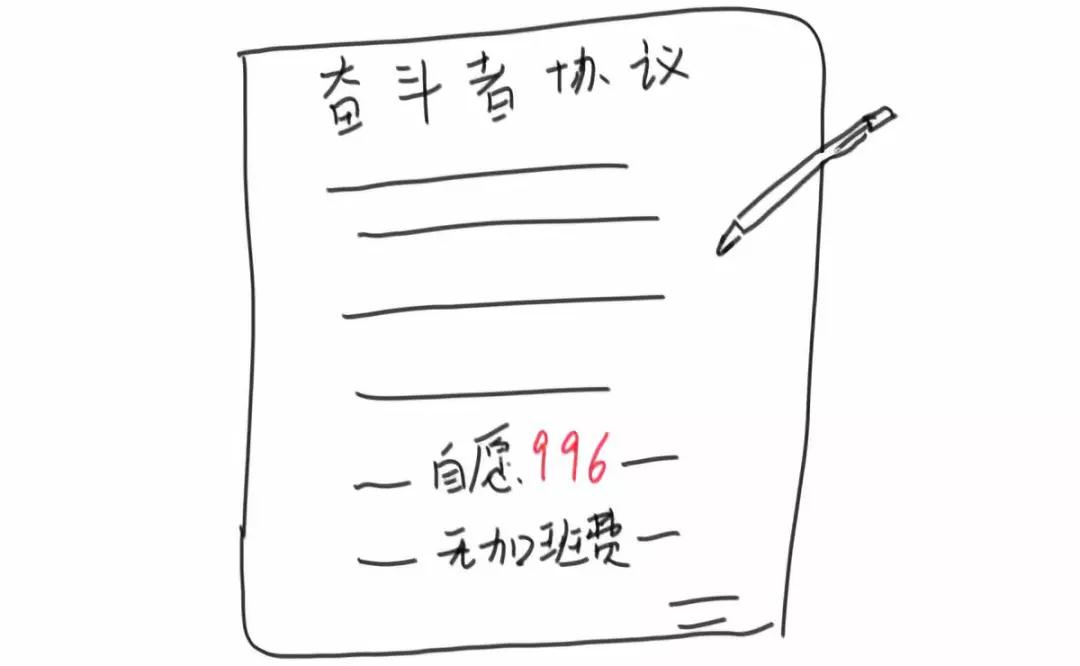 奋斗者协议
自愿996
无加班费